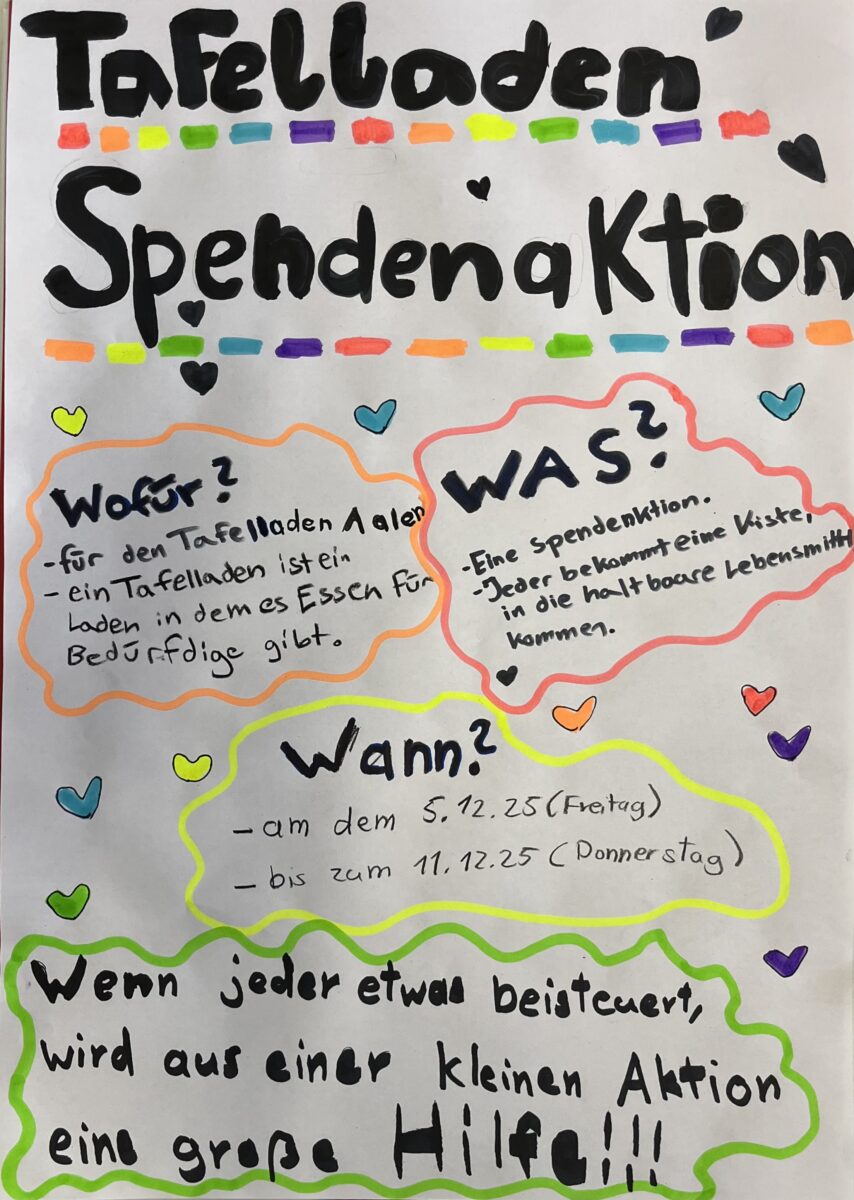 Tafelladen
Spendenaktion
Wofür?
-für den Tafelladen Aalen
- ein Tafelladen ist ein
Laden in dem es Essen für
Bedürfdige gibt.
WAS?
-Eine spendenktion.
-Jeder bekommt eine Kiste,
in die haltbaare Lebensmittl
kommen.
Wann?
- am dem 5.12.25 (Freitag)
- bis zum 11.12.25 (Donnerstag)
Wenn jeder etwas beisteuert,
wird aus einer kleinen Aktion
eine große Hilfe!!!